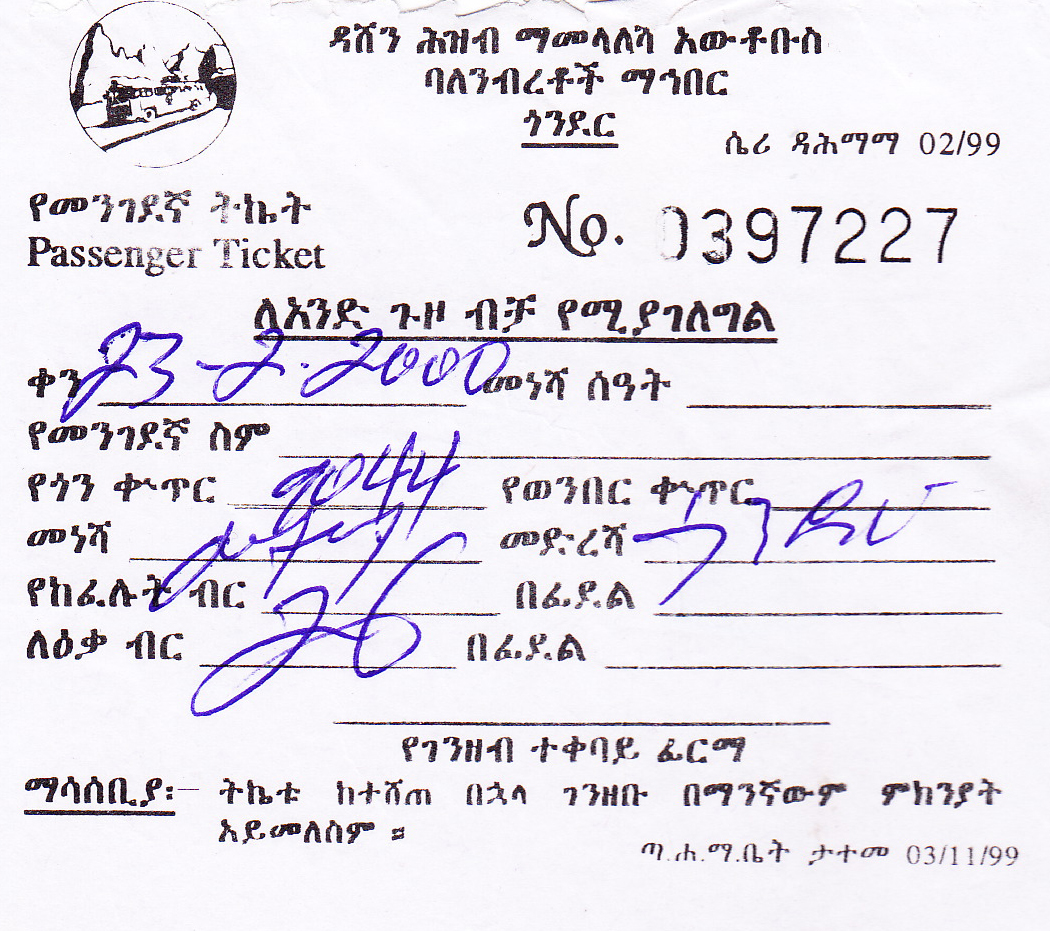 ዳሽን ሕዝብ ማመላለሻ አውቶቡስ
ባለንብረቶች ማኅበር
ጎንደር
ሴሪ ዳሕማማ 02/99
የመንገደኛ ትኬት
Passenger Ticket
No. 0397227
ለአንድ ጉዞ ብቻ የሚያገለግል
ቀን 23-2-2000 መነሻ ሰዓት
የመንገደኛ ስም
የጎን ቀጥር የወንበር ቀጥር
መነሻ መድረሻ
የከፈሉት ብር 26 በፊደል
ለዕቃ ብር በፊደል
የገንዘብ ተቀባይ ፊርማ
ማሳሰቢያ:– ትኬቱ ከተሸጠ በኋላ ገንዘቡ በማንኛውም ምክንያት
አይመለስም ።
ጣ.ሐ.ማ.ቤት ታተመ 03/11/99